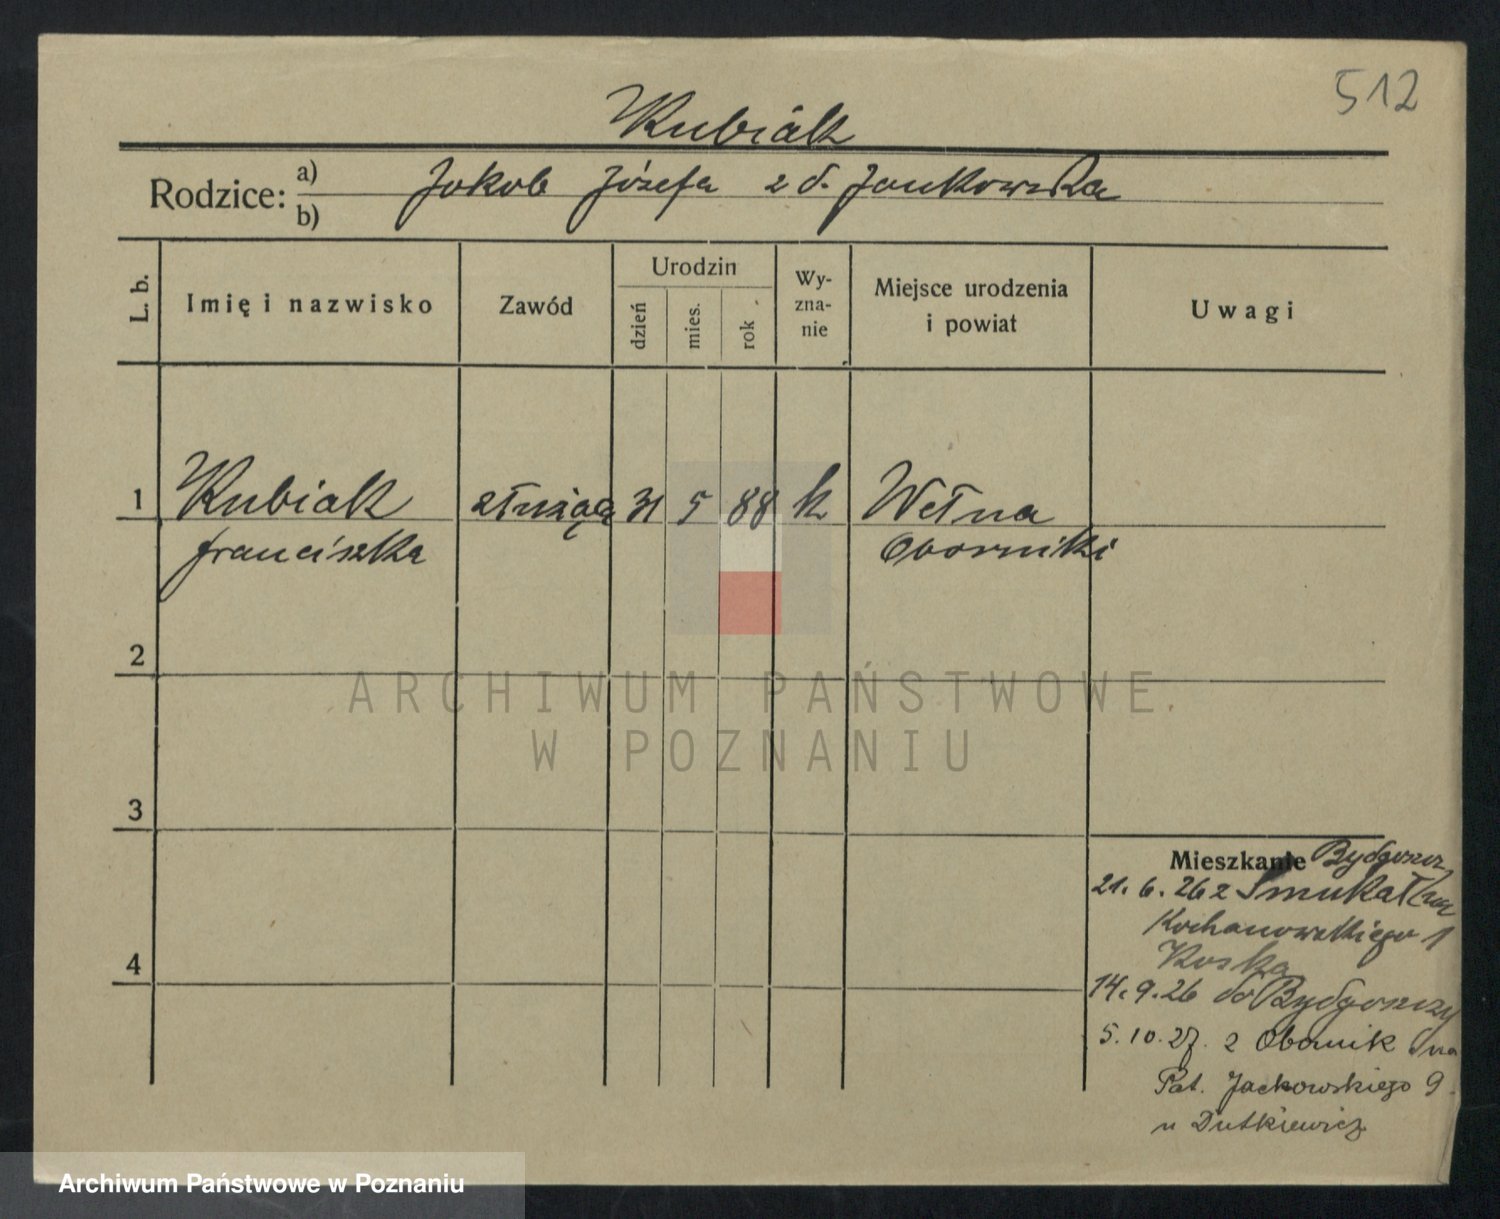 512
Kubiak
Rodzice: a) b)
Jakob Józefa z d. Jankowska
L. b.
Imię i nazwisko
Zawód
Urodzin
dzień
mies.
rok
Wy-
zna-
nie
Miejsce urodzenia
i powiat
Uwagi
1 Kubiak służąca 31 5 88 k Wełna
Franciszka Oborniki
2
3
4
Mieszkanie Bydgoszcz
21. 6. 26 z Smukał
Kochanowskiego 1
Koska
14. 9. 26 do Bydgoszczy
5. 10. 27. z Obornik na
Pat. Jackowskiego 9.
u Dutkiewicz
ARCHIWUM PAŃSTWOWE
W POZNANIU
Archiwum Państwowe w Poznaniu